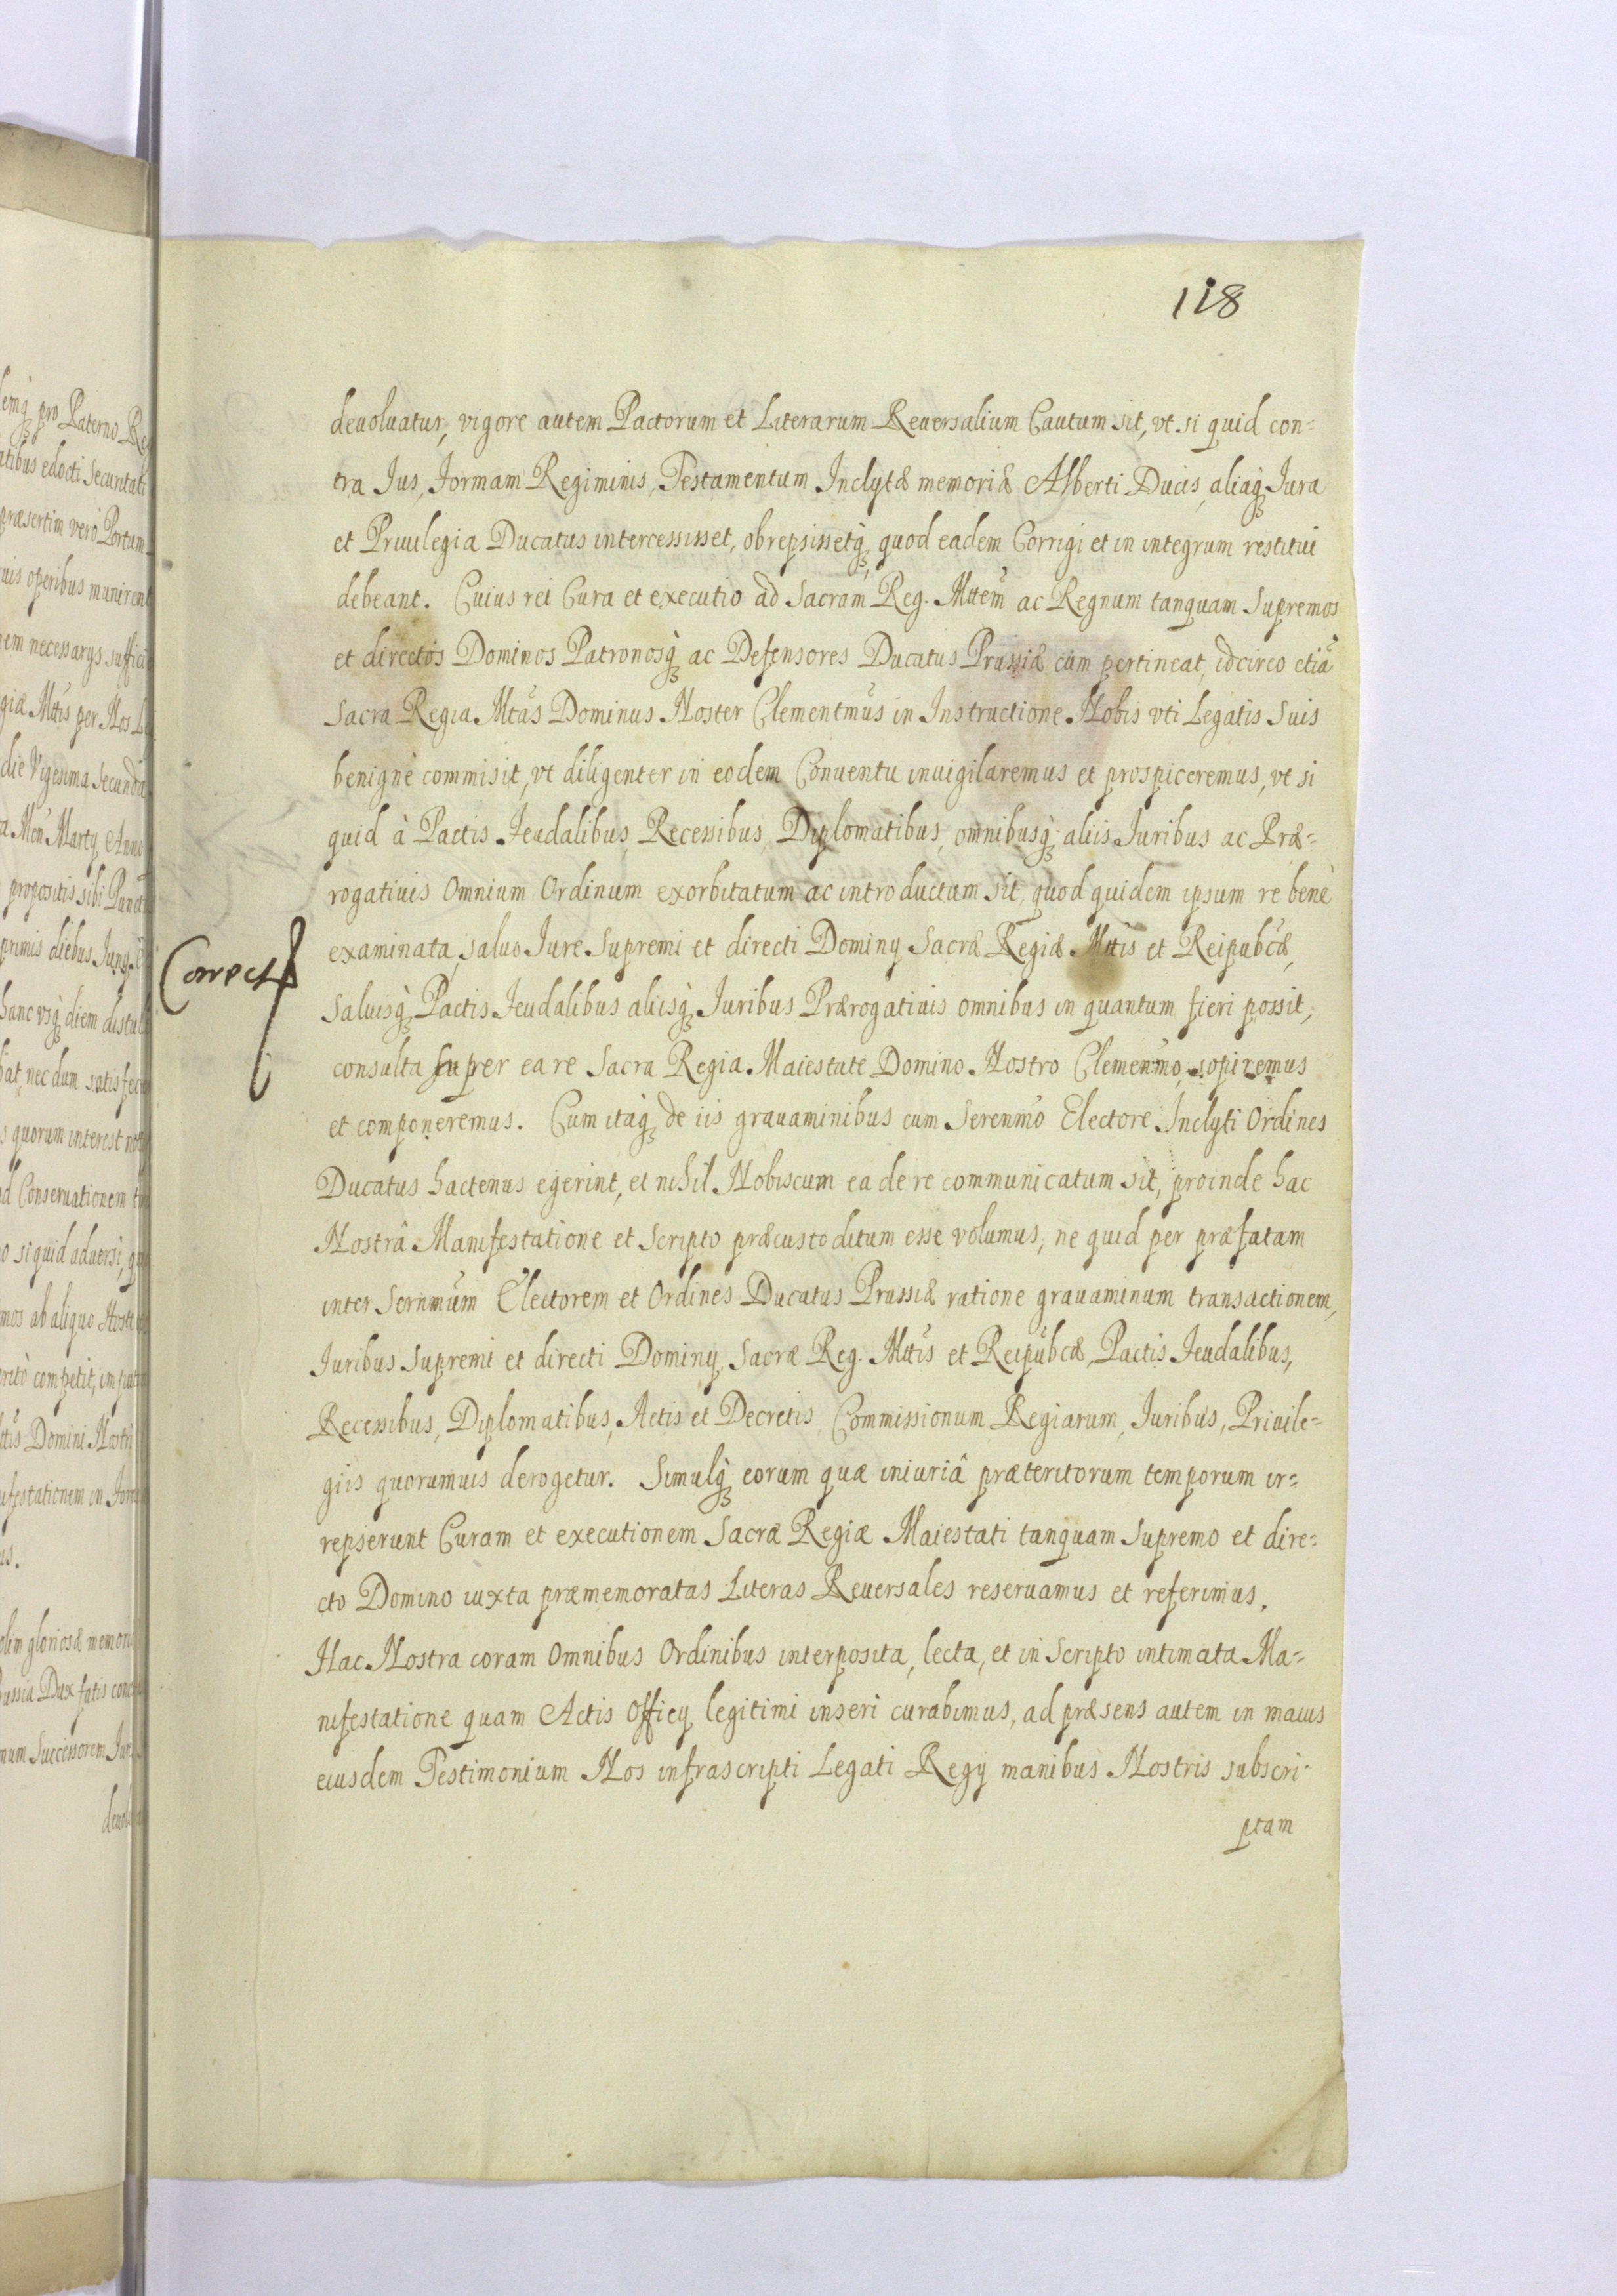 118
deuoluatur, vigore autem Pactorum et Literarum Reuersalium Cautum sit, vt si quid con-
tra Jus, Formam Regiminis, Testamentum Inclytæ memoriæ Alberti Ducis, aliaq₃ Jura
et Priuilegia Ducatus intercessisset, obrepsissetq₃ quod eadem Corrigi et in integrum restitui
debeant. Cuius rei Cura et executio ad Sacram Reg. Mttem ac Regnum tanquam Supremos
et directos Dominos Patronosq₃ ac Defensores Ducatus Prussiæ cum pertineat, idcirco etiã
Sacra Regia Mtas Dominus Noster Clementmus in Instructione Nobis vti Legatis Suis
benignè commisit, vt diligenter in eodem Conuentu inuigilaremus et prospiceremus, vt si
quid à Pactis Feudalibus, Recessibus, Diplomatibus, omnibusq₃ aliis Juribus ac Præ-
rogatiuis Omnium Ordinum exorbitatum ac introductum sit, quod quidem ipsum re benè
examinata, saluo Jure Supremi et directi Dominij Sacræ Regiæ Mttis et Reipubcæ,
Correct
Saluisq₃ Pactis Feudalibus aliisq₃ Juribus Prærogatiuis omnibus in quantum fieri possit,
consulta super ea re Sacra Regia Maiestate Domino Nostro Clemenmo, sopiremus
et componeremus. Cum itaq₃ de iis grauaminibus cum Serenmo Electore Inclyti Ordines
Ducatus hactenus egerint, et nihil Nobiscum ea de re communicatum sit, proinde hac
Nostrâ Manifestatione et Scripto præcustoditum esse volumus, ne quid per præfatam
inter Sernmum Electorem et Ordines Ducatus Prussiæ ratione grauaminum transactionem,
Juribus Supremi et directi Dominij Sacræ Reg. Mttis et Reipubcæ, Pactis Feudalibus,
Recessibus, Diplomatibus, Actis et Decretis Commissionum Regiarum, Juribus, Priuile-
giis quorumuis derogetur. Simulq₃ eorum quæ iniuriâ præteritorum temporum ir-
repserunt Curam et executionem Sacræ Regiæ Maiestati tanquam Supremo et dire-
cto Domino iuxta præmemoratas Literas Reuersales reseruamus et referimus.
Hac Nostra coram Omnibus Ordinibus interposita, lecta, et in Scripto intimata Ma-
nifestatione quam Actis Officij legitimi inseri curabimus, ad præsens autem in maius
eiusdem Testimonium Nos infrascripti Legati Regij manibus Nostris subscri-
ptam